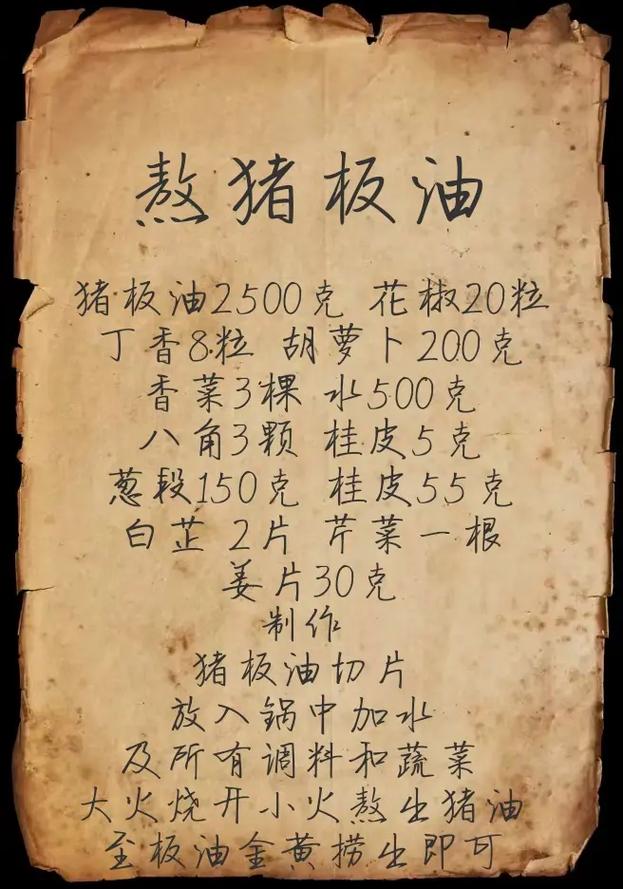 熬猪板油
猪板油2500克 花椒20粒
丁香8粒 胡萝卜200克
香菜3棵 水500克
八角3颗 桂皮5克
葱段150克 桂皮55克
白芷 2片 芹菜一根
姜片30克
制作
猪板油切片
放入锅中加水
及所有调料和蔬菜
大火烧开小火熬出猪油
至板油金黄捞出即可